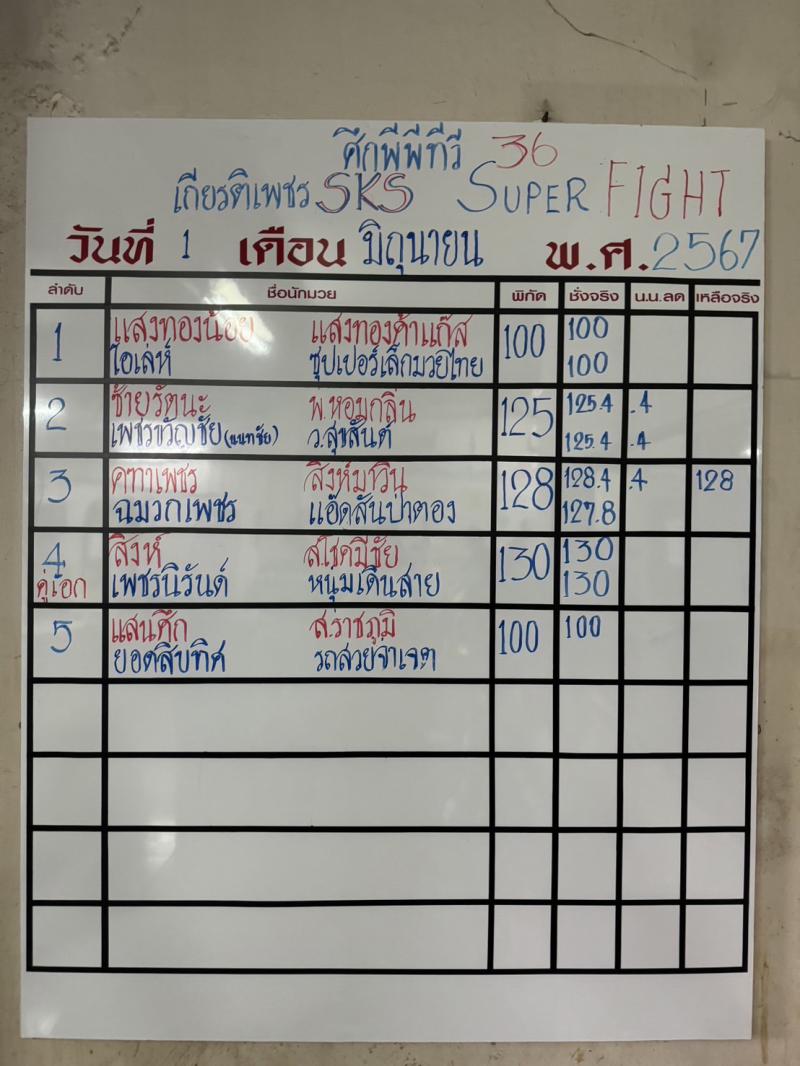 ศึกพีพีทีวี 36
เกียรติเพชร SKS SUPER FIGHT
วันที่ 1 เดือน มิถุนายน พ.ศ. 2567
ลำดับ ชื่อนักมวย พิกัด ชั่งจริง น.น.ลด เหลือจริง
1 แสงทองน้อย แสงทองค้าแก๊ส 100 100
ไอเล่ห์ ซุปเปอร์เล็กมวยไทย 100
2 ซ้ายรัตนะ พ.หอมกลิ่น 125 125.4 .4
เพชรขวัญชัย (แนทชัย) ว.สุขสันต์ 125.4 .4
3 คฑาเพชร สิงห์มาวิน 128 128.4 .4 128
ฉมวกเพชร แอ๊ดสันป่าตอง 127.8
4 สิงห์ ส.โชคมีชัย 130 130
คู่เอก เพชรนิรันด์ หนุมเดินสาย 130
5 แสนศึก ส.ราชภูมิ 100 100
ยอดสิบทิศ รถสวยจ่าเจต